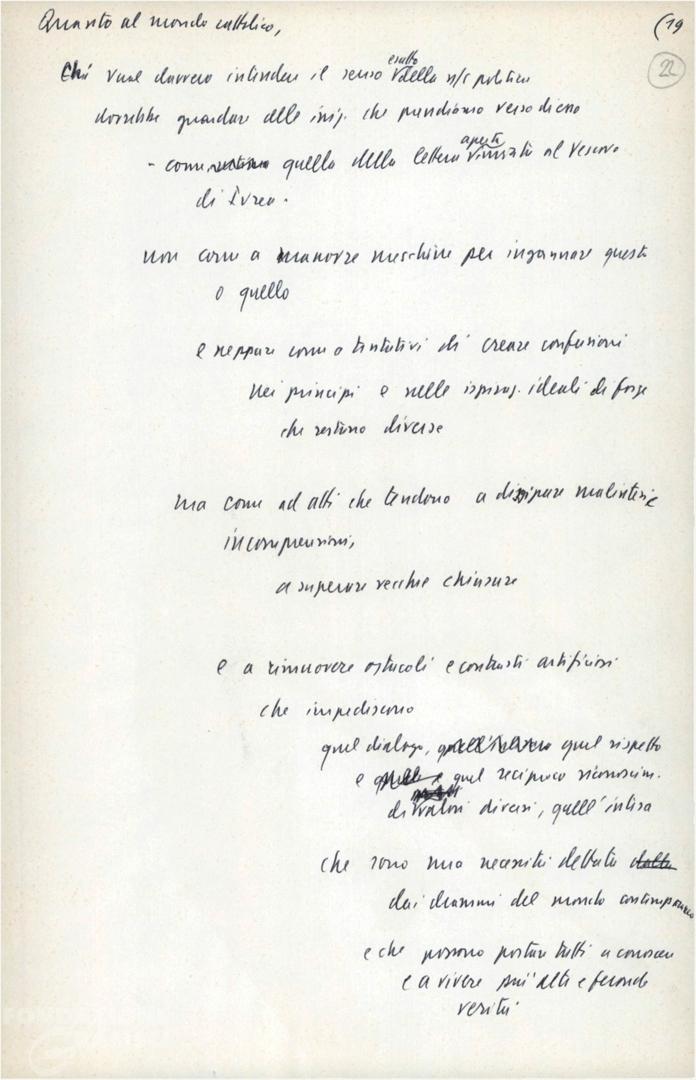 Quanto al mondo cattolico,
(19
22
Chi vuol davvero intendere il senso esatto della n/s politica
dovrebbe guardare alle iniz. che prendiamo verso di esso
- come quella della lettera aperta al Vescovo
di Ivrea -
non come a manovre meschine per ingannare questo
o quello
e neppure come a tentativi di creare confusioni
nei principi e nelle ispiraz. ideali di forze
che restano diverse
ma come ad atti che tendono a dissipare malintesi e
incomprensioni,
a superare vecchie chiusure
e a rimuovere ostacoli e contrasti artificiosi
che impediscono
quel dialogo, quel rispetto
e quel reciproco riconoscim.
di valori diversi, quell'intesa
che sono una necessità dettata
dai drammi del mondo contemporaneo
e che possono portare tutti a conoscere
e a vivere più alte e feconde
verità